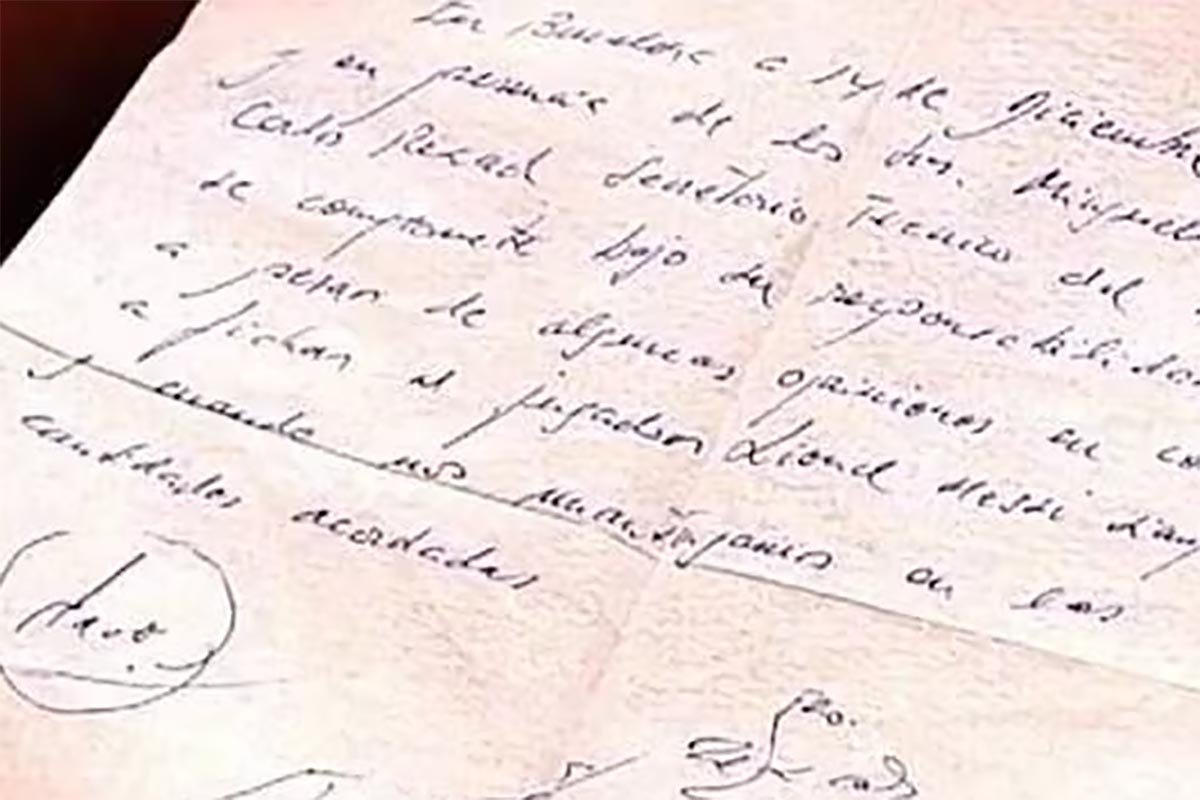 En Barcelona a 14 de Diciembre
y en presencia de los Srs. Minguella
Carlos Rexach Secretario Tecnico del
se compromete bajo su responsabilidad
a pesar de algunas opiniones en co
a fichar al jugador Lionel Messi siemp
y cuando nos mantengamos en las
cantidades acordadas